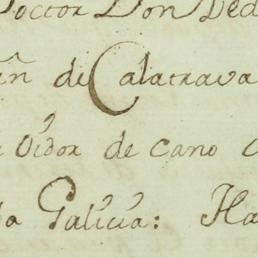 Doctor Don Ped
ĩn de Calatrava
Oidor de Cano
Galicia: Ha